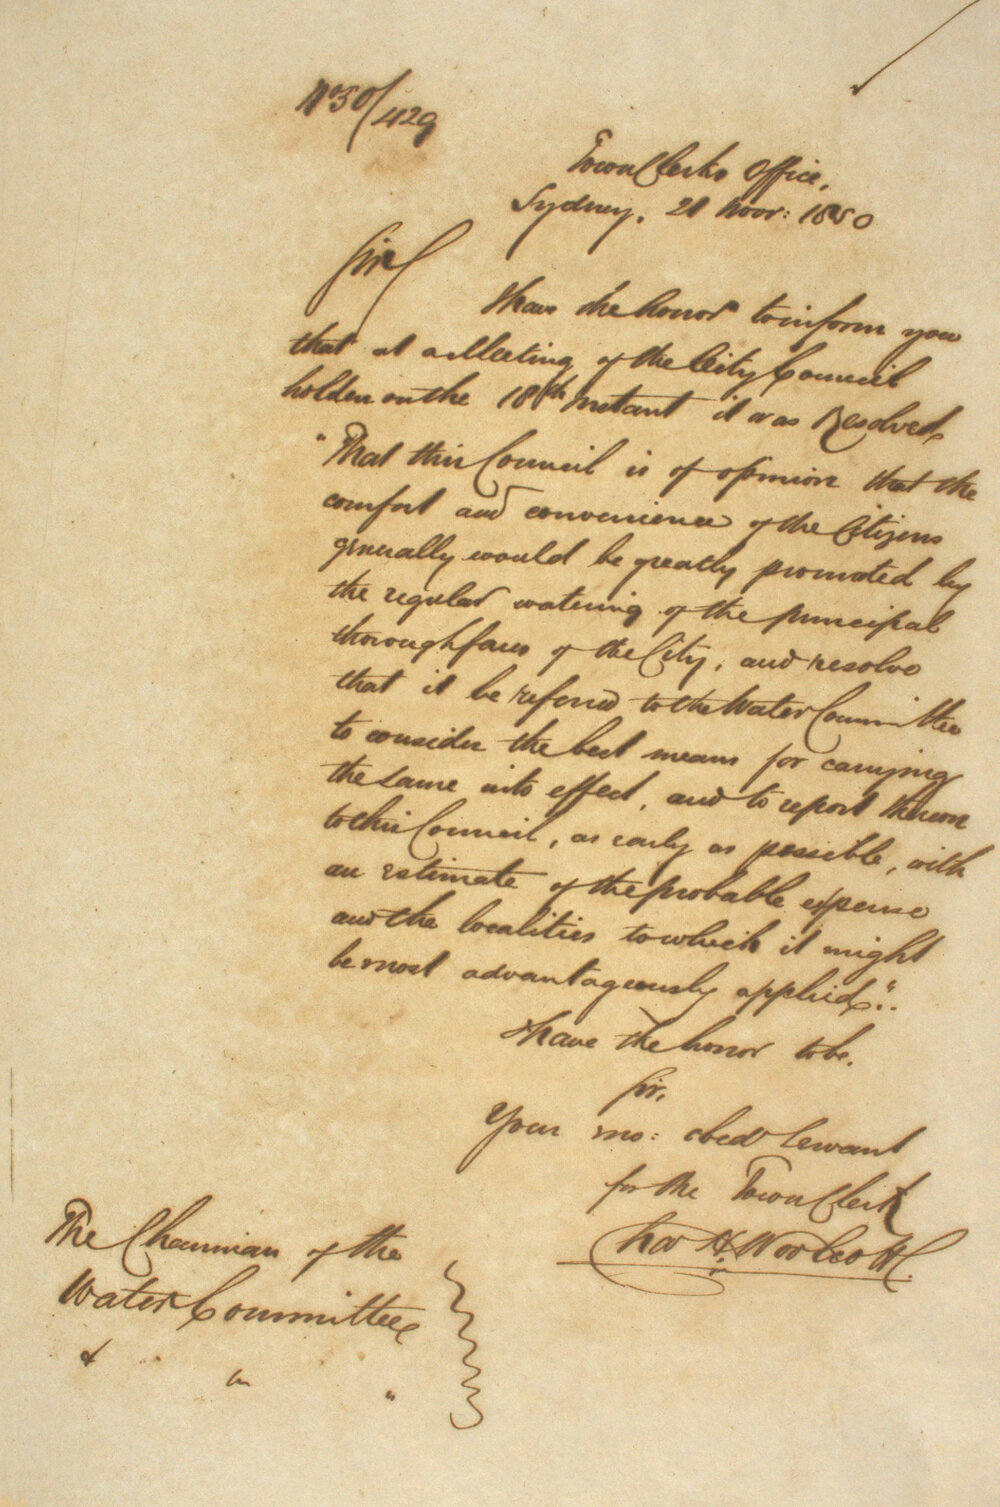 No 50/429
Town Clerks Office,
Sydney. 21 Novr: 1850
Sir
I have the honor to inform you
that at a Meeting of the City Council
holden on the 18th Instant it was Resolved,
"That this Council is of opinion that the
comfort and convenience of the Citizens
generally would be greatly promoted by
the regular watering of the principal
thoroughfares of the City, and resolve
that it be referred to the Water Committee
to consider the best means for carrying
the same into effect, and to report thereon
to this Council, as early as possible, with
an estimate of the probable expense
and the localities to which it might
be most advantageously applied".
I have the honor to be.
Sir,
Your mo: obed Servant
for the Town Clerk
Chas H. Woolcott
The Chairman of the
Water Committee
& " "